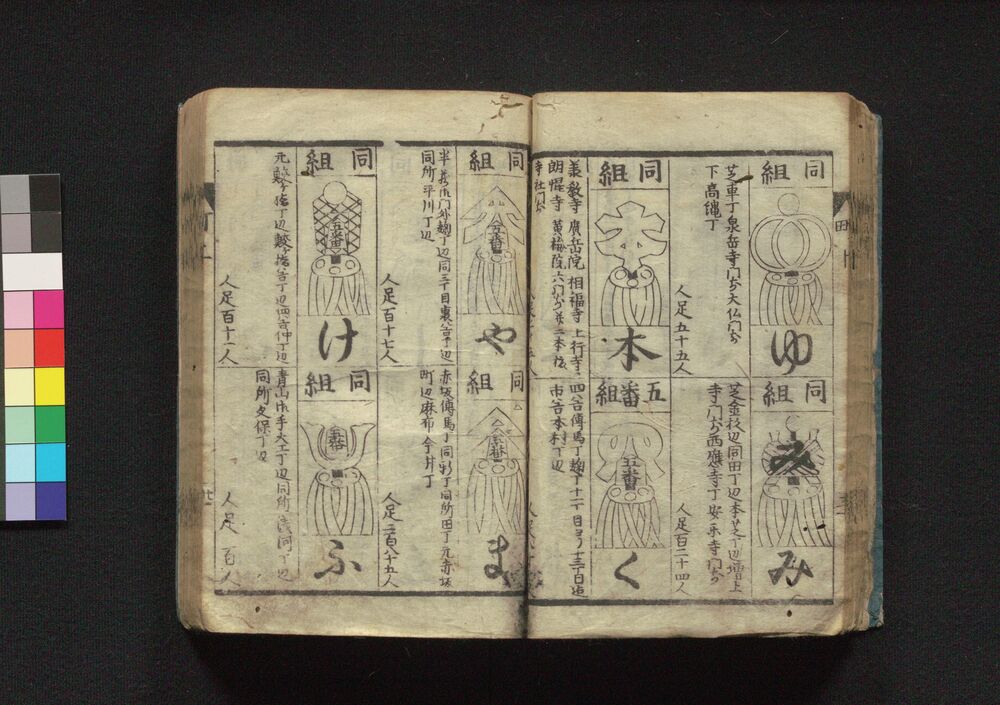 同組
ゆ
芝車丁泉岳寺門前大仏門前
下高縄丁
人足五十五人
同組
み
芝金杉辺同田丁辺本芝丁辺増上
寺門前西應寺丁安楽寺門前
人足百二十四人
同組
本
義教寺 廣岳院 相福寺 上行寺
朗惺寺 黄梅院
寺社門前
五番組
五番
く
四谷傳馬丁麹丁十一丁目ヨリ十三丁目迄
市谷本村丁辺
同組
五番
や
半蔵御門外麹丁辺同三丁目裏谷丁辺
同所平川丁辺
人足百十七人
同組
五番
ま
赤坂傳馬丁同新丁同所田丁元赤坂
町辺麻布今井丁
人足二百八十五人
同組
五番
け
元鮫ヶ橋丁辺鮫ヶ橋谷丁辺四谷仲丁辺
人足百十一人
同組
五番
ふ
青山御手大工丁辺同所浅河丁辺
同所久保丁辺
人足 百人